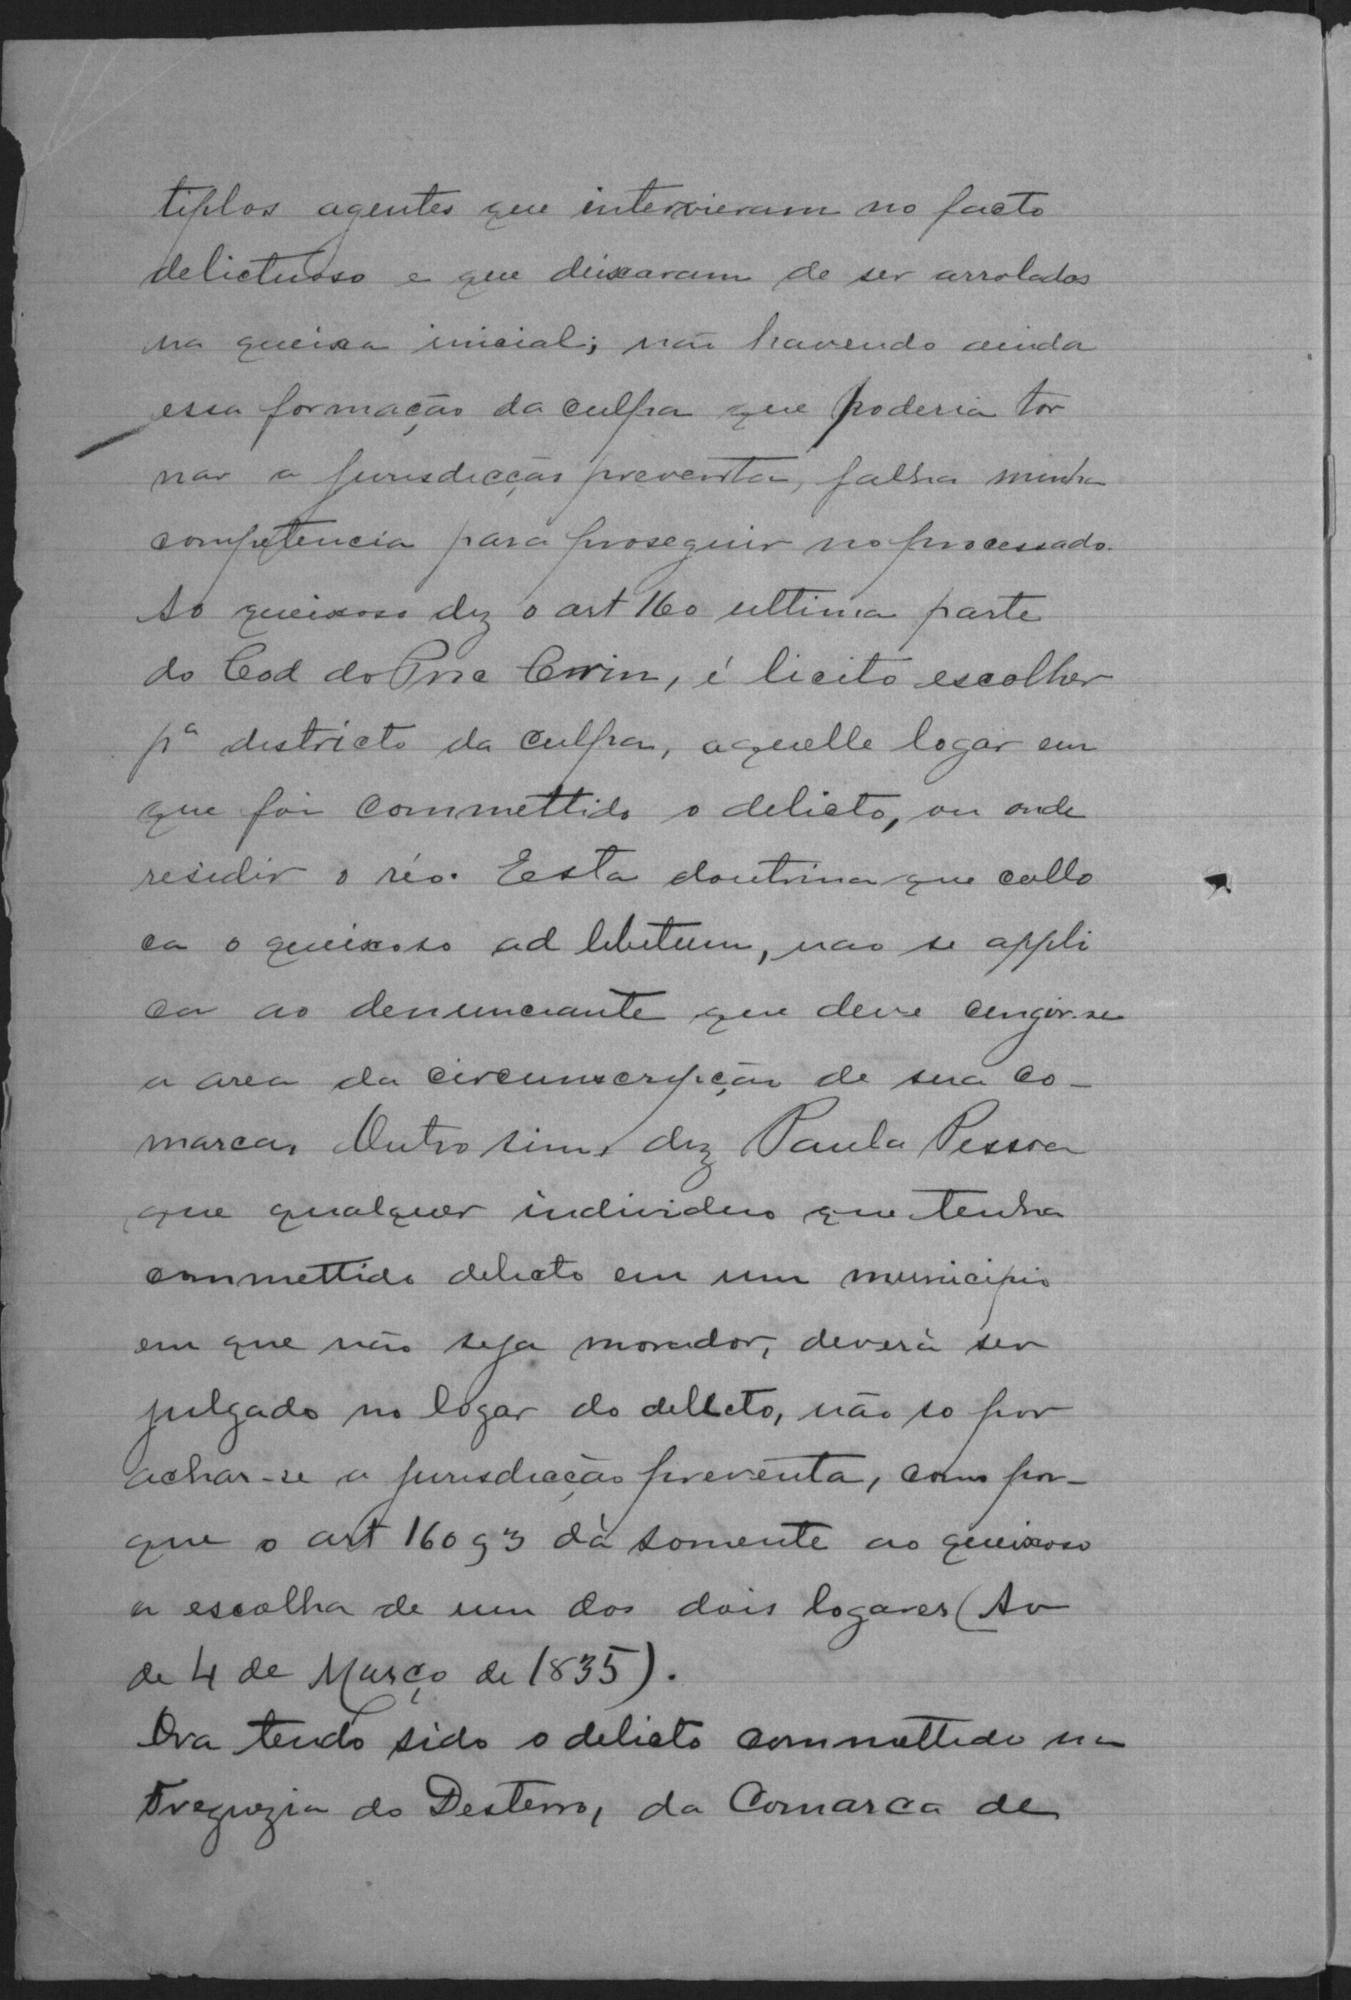 tiplos agentes que intervieram no facto
delictuoso e que deixaram de ser arrolados
na queixa inicial; não havendo ainda
essa formação da culpa que poderia tor
nar a jurisdicção preventa, falha minha
competencia para proseguir no processado.
Ao queixoso diz o art 160 ultima parte
do Cod do Proc Crim, é licito escolher
pª districto da culpa, aquelle logar em
que foi commettido o delicto, ou onde
residir o réo. Esta doutrina que collo
ca o queixoso ad libitum, nao se appli
ca ao denunciante que deve cingir-se
a area da circumscripção de sua co-
marca. Outro sim, diz Paula Pessoa
que qualquer individuo que tenha
commettido delicto em um municipio
em que não seja morador, deverá ser
julgado no logar do delicto, não so por
achar-se a jurisdicção preventa, como por-
que o art 160 § 3 dá somente ao queixoso
a escolha de um dos dois logares (Av
de 4 de Março de 1835).
Ora tendo sido o delicto commettido na
Freguezia do Desterro, da Comarca de